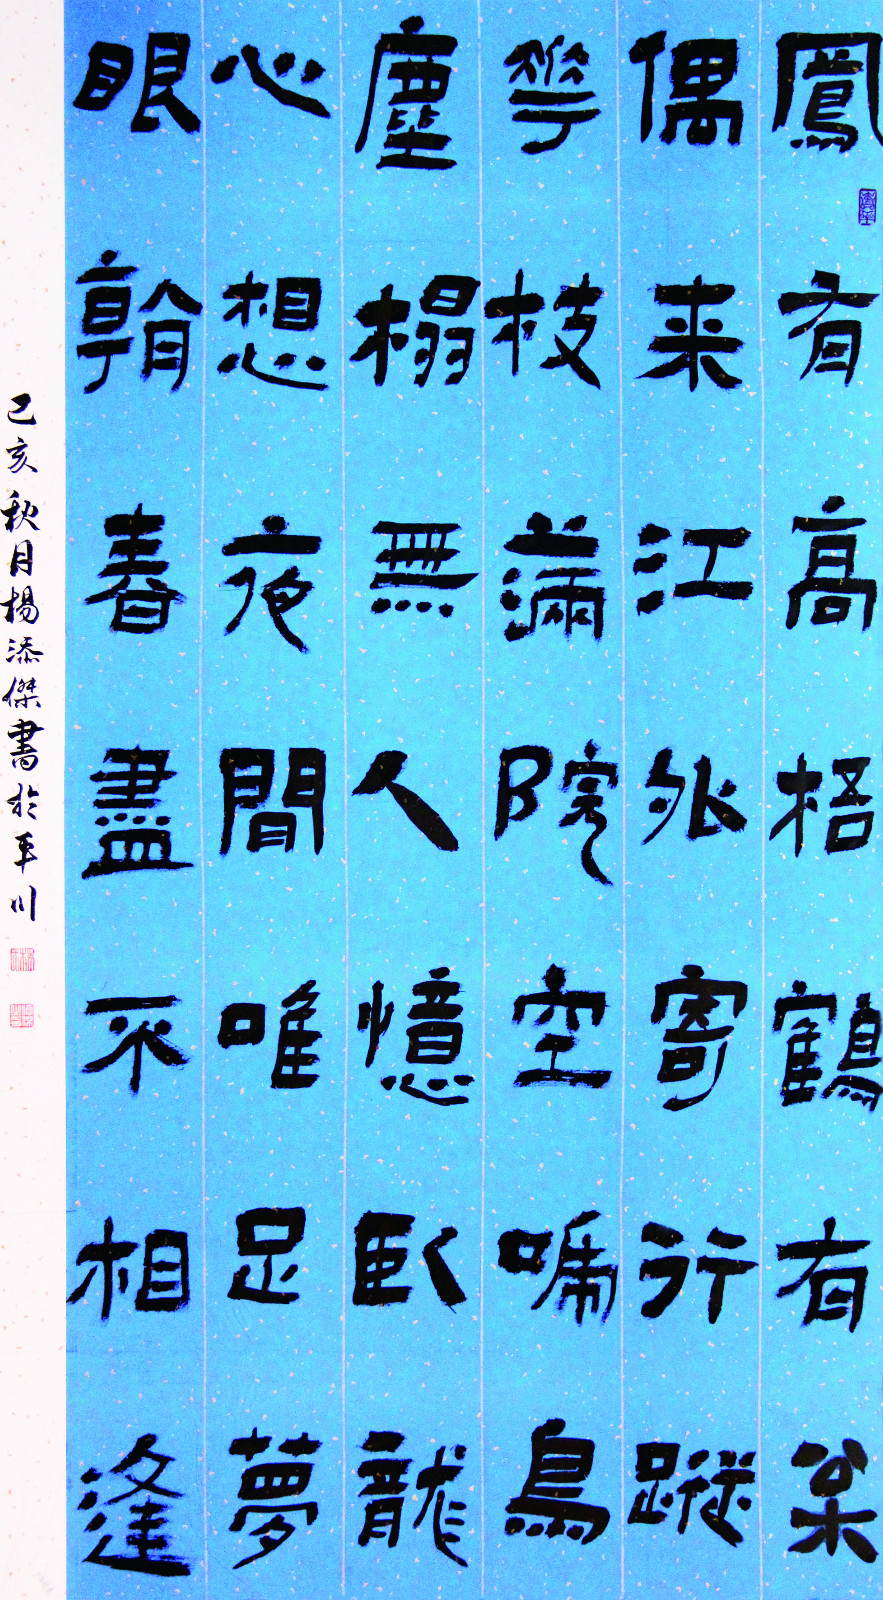 鳳有高梧鶴有枀
偶来江外寄行蹤
華枝滿院空嗁鳥
塵榻無人憶臥龍
心想夜間唯足夢
眼看春盡不相逢
己亥秋月楊添傑書於平川